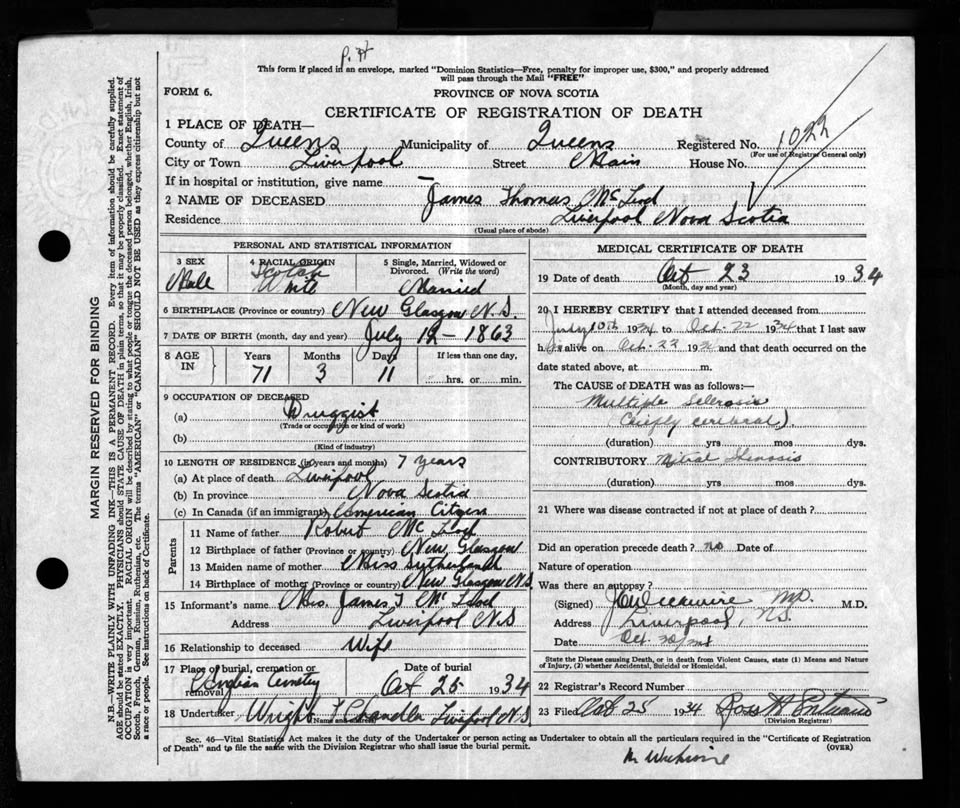 P. H
This form if placed in an envelope, marked "Dominion Statistics—Free, penalty for improper use, $300," and properly addressed
will pass through the Mail "FREE"
FORM 6.
PROVINCE OF NOVA SCOTIA
CERTIFICATE OF REGISTRATION OF DEATH
1 PLACE OF DEATH—
County of Queens Municipality of Queens Registered No. 1022
(For use of Registrar General only)
City or Town Liverpool Street Main House No.
If in hospital or institution, give name —
2 NAME OF DECEASED James Thomas McLeod
Residence Liverpool Nova Scotia
(Usual place of abode)
PERSONAL AND STATISTICAL INFORMATION
3 SEX Male
4 RACIAL ORIGIN Scotch White
5 Single, Married, Widowed or Divorced. (Write the word) Married
6 BIRTHPLACE (Province or country) New Glasgow N.S.
7 DATE OF BIRTH (month, day and year) July 12 - 1863
8 AGE IN Years 71 Months 3 Days 11 If less than one day, hrs. or min.
9 OCCUPATION OF DECEASED
(a) Druggist
(Trade or occupation or kind of work)
(b)
(Kind of industry)
10 LENGTH OF RESIDENCE (in years and months) 7 years
(a) At place of death Liverpool
(b) In province Nova Scotia
(c) In Canada (if an immigrant) American Citizen
Parents
11 Name of father Robert McLeod
12 Birthplace of father (Province or country) New Glasgow
13 Maiden name of mother Miss Sutherland
14 Birthplace of mother (Province or country) New Glasgow N.S.
15 Informant's name Mrs. James T McLeod
Address Liverpool N.S
16 Relationship to deceased Wife
17 Place of burial, cremation or removal Cemetery
Date of burial Oct 25 1934
18 Undertaker Wright Chandler Liverpool N.S.
(Name and address)
MEDICAL CERTIFICATE OF DEATH
19 Date of death Oct 23 1934
(Month, day and year)
20 I HEREBY CERTIFY that I attended deceased from
July 10th 1934 to Oct. 22 1934 that I last saw
h alive on Oct. 22 193 and that death occurred on the
date stated above, at m.
The CAUSE OF DEATH was as follows:
Multiple Sclerosis
(Chiefly cerebral)
(duration) yrs mos dys.
CONTRIBUTORY Mitral Stenosis
(duration) yrs mos dys.
21 Where was disease contracted if not at place of death?
Did an operation precede death? no Date of
Nature of operation
Was there an autopsy?
(Signed) MD. M.D.
Address Liverpool, N.S.
Date Oct.
State the Disease causing Death, or in death from Violent Causes, state (1) Means and Nature
of Injury, (2) whether Accidental, Suicidal or Homicidal.
22 Registrar's Record Number
23 Filed Oct 25 1934 Ross M
(Division Registrar)
Sec. 46—Vital Statistics Act makes it the duty of the Undertaker or person acting as Undertaker to obtain all the particulars required in the "Certificate of Registration
of Death" and to file the same with the Division Registrar who shall issue the burial permit. (OVER)
MARGIN RESERVED FOR BINDING
N.B.—WRITE PLAINLY WITH UNFADING INK—THIS IS A PERMANENT RECORD. Every item of information should be carefully supplied.
AGE should be stated EXACTLY. PHYSICIANS should STATE CAUSE OF DEATH in plain terms, so that it may be properly classified. Exact statement of
OCCUPATION is very important. RACIAL ORIGIN will be described by stating to what people or tongue the deceased person belonged, whether English, Irish,
Scotch, French, German, Russian, Ruthenian, etc. The terms "AMERICAN" or "CANADIAN" SHOULD NOT BE USED as they express citizenship but not
a race or people. See instructions on back of Certificate.